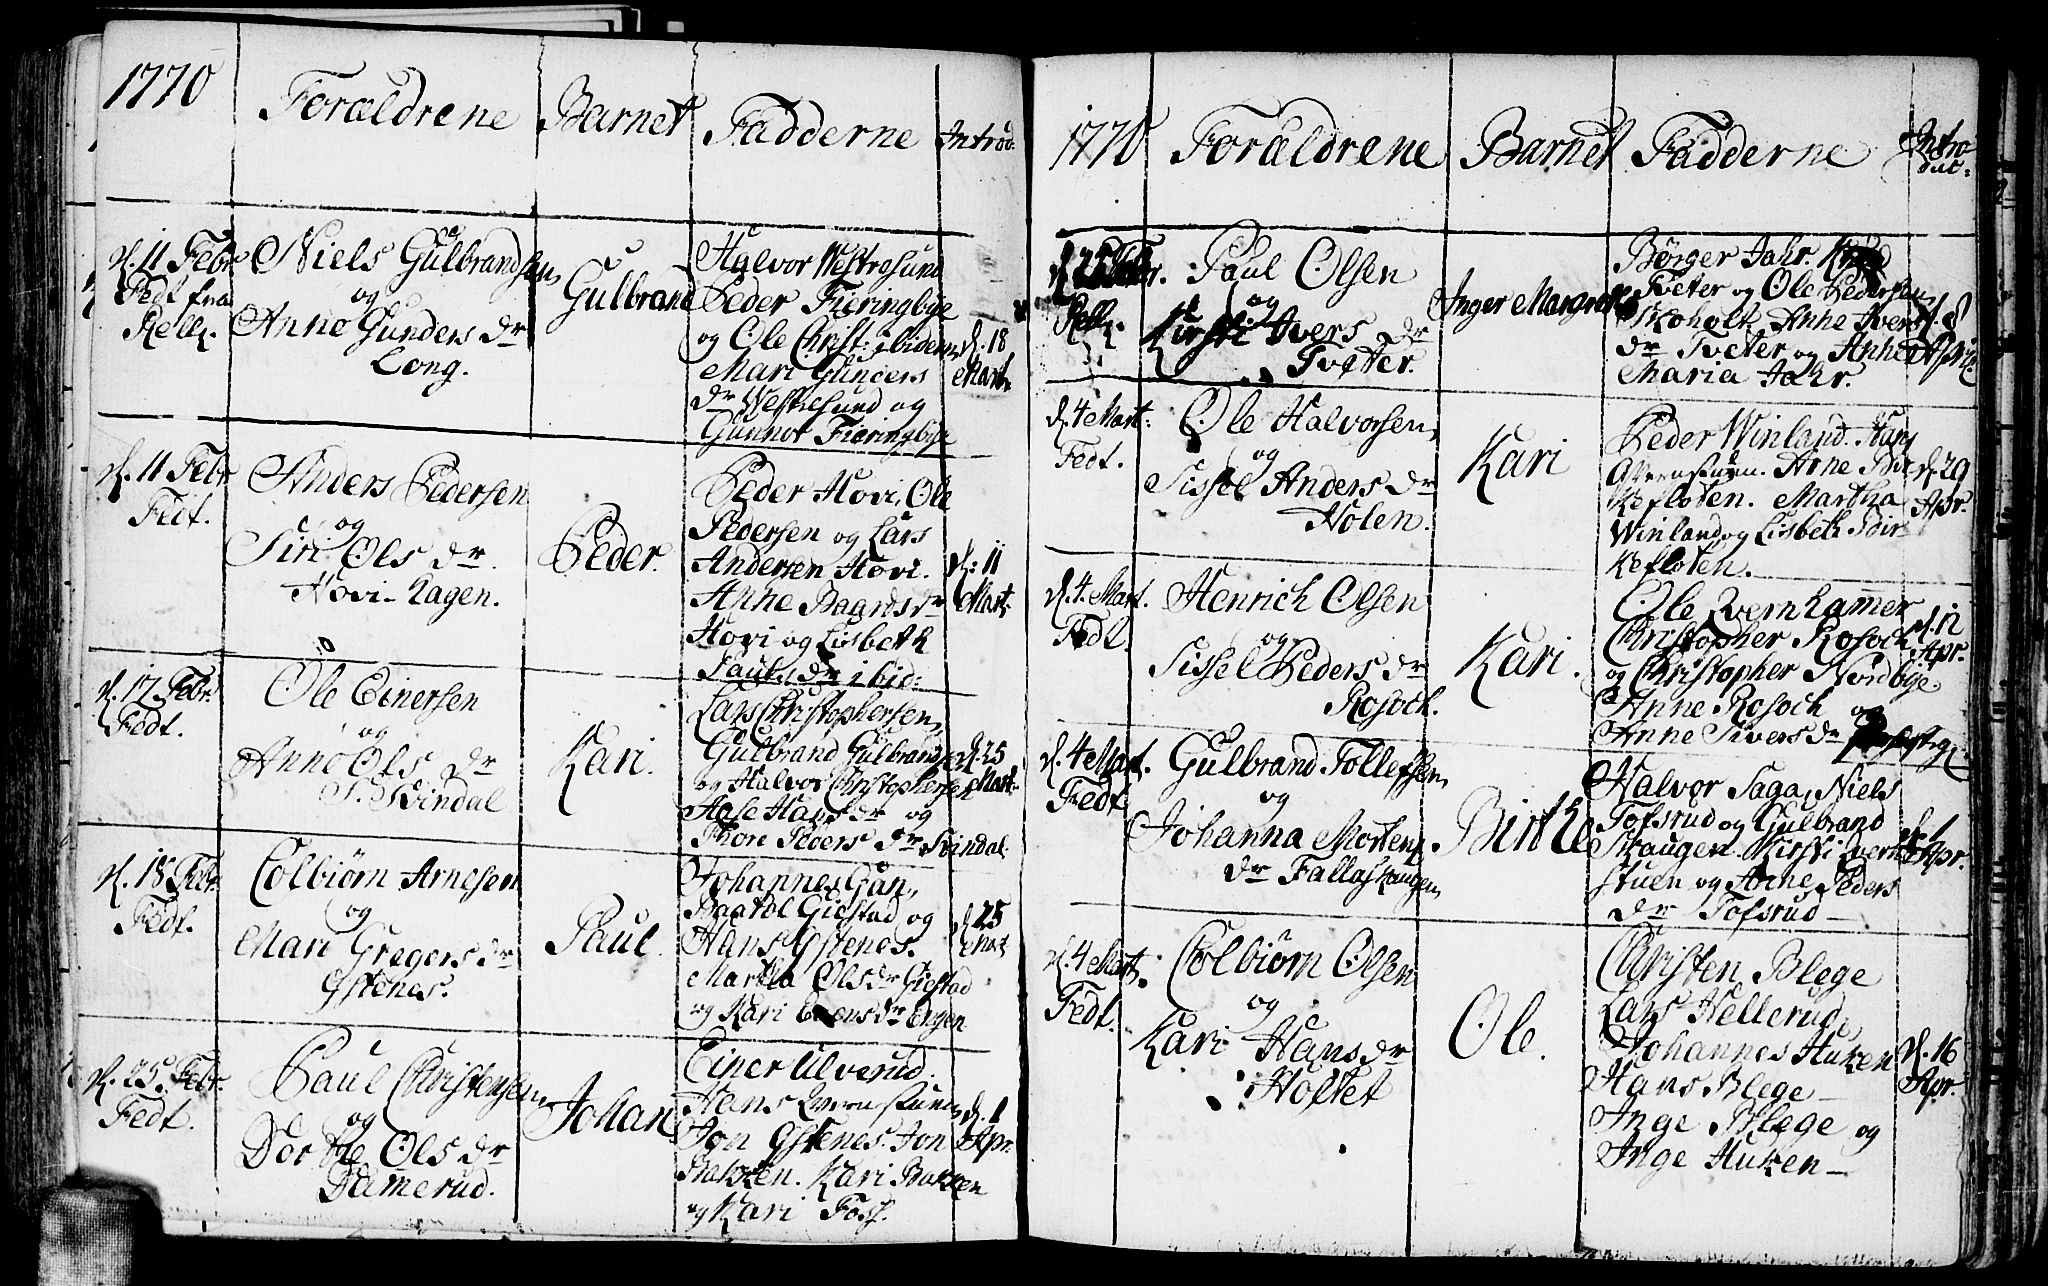 1770
Forældrene
Barnet
Fadderne
Introd:
d. 11 Febr.
Fedt fra
Rell.
Niels Gulbrandsen
og
Anne Gunders dr
Long.
Gulbrand
Halvor Westresund
Peder Fieringbye
og Ole Christ: ibidem
Mari Gunders
dr Westresund og
Gunnor Fieringbye
d. 18
Mart:
d. 11 Febr
Fedt.
Anders Pedersen
og
Siri Ols dr
Hovi-hagen.
Peder.
Peder Hovi, Ole
Pedersen og Lars
Andersen Hovi.
Anne Bagrds dr
Hovi og Lisbeth
Pauls dr ibid:
d: 11
Mart:
d. 17 Febr.
Fedt.
Ole Einersen
og
Anne Ols dr
S. Svindal
Kari.
Lars Christophersen,
Gulbrand Gulbrands.
og Halvor Christophersen
Aase Hans dr og
Thore Peders dr Svindal.
d. 25
Mart:
d. 18 Febr.
Fedt.
Colbiørn Arnesen
og
Mari Gregers dr
Gstenes.
Paul.
Johannes Gan,
Baarol Giestad og
Hans Gstenes.
Martha Ols dr Giestad
og Kari dr Engen
d. 25
Mart
d. 25. Febr.
Fedt.
Paul Christensen
og
Dorthe Ols dr
Damerud.
Johan
Einer Ulverud.
Hans Qvernstuen
Jon Gstenes. Jon
Bakken. Kari Bakken
og Kari Foss.
d. 1
Apr:
1770
Forældrene
Barnet
Fadderne
Intro
duc:
d. 25 Febr.
Rell.
Paul Olsen
og
Kirsti Ivers dr
Tveter.
Inger Margrethe
Børger Jahr.
Tveter og Ole Pedersen
Skoholt Anne Ivers
dr Tveter og Anne
Maria Jahr.
d. 8
April
d. 4 Mart:
Fedt.
Ole Halvorsen
og
Sissel Anders dr
Holen.
Kari
Peder Winland. Hans
Qvernstuen. Arne Bir
kefloten. Martha
Winland og Lisbeth Bir
kefloten.
d. 29
Apr.
d. 4. Mart.
Fedt.
Henrich Olsen
og
Sissel Peders dr
Rosoch.
Kari.
Ole Qvernhamer
Christopher Rosoch
og Christopher Nordbye
Anne Rosoch og
Anne Sivers dr
d. 12
Apr.
d. 4 Mart.
Fedt
Gulbrand Tollefsen
og
Johanna Mortens
dr Fallaskaugen
Birthe
Halvor Saga, Niels
Tofsrud og Gulbrand
Skaugen. Kirsti Qvern
stuen og Anne Peders
dr Tofsrud
d. 1
Apr.
d. 4 Mart.
Fedt.
Colbiørn Olsen
og
Kari Hans dr
Holtet
Ole.
Christen Blege
Lars Hellerud,
Johannes Huken
Hans Blege
Inge Blege og
Inge Huken
d. 16
Apr.